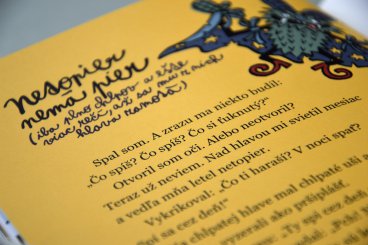 Netopier
nemá pier
(iba plno chlpov a ešte
viac rečí, až sa mu z nich
hlava zamotá)
Spal som. A zrazu ma niekto budil:
„Čo spíš? Čo spíš? Čo si ťuknutý?“
Otvoril som oči. Alebo neotvoril?
Teraz už neviem. Nad hlavou mi svietil mesiac
a vedľa mňa letel netopier.
Vykrikoval: „Čo ti haraší? V noci spať?
si sa cez deň!“
chlpatej hlave mal chlpaté uši a
zerali ako pripišlášť.
„Ty spi cez deň